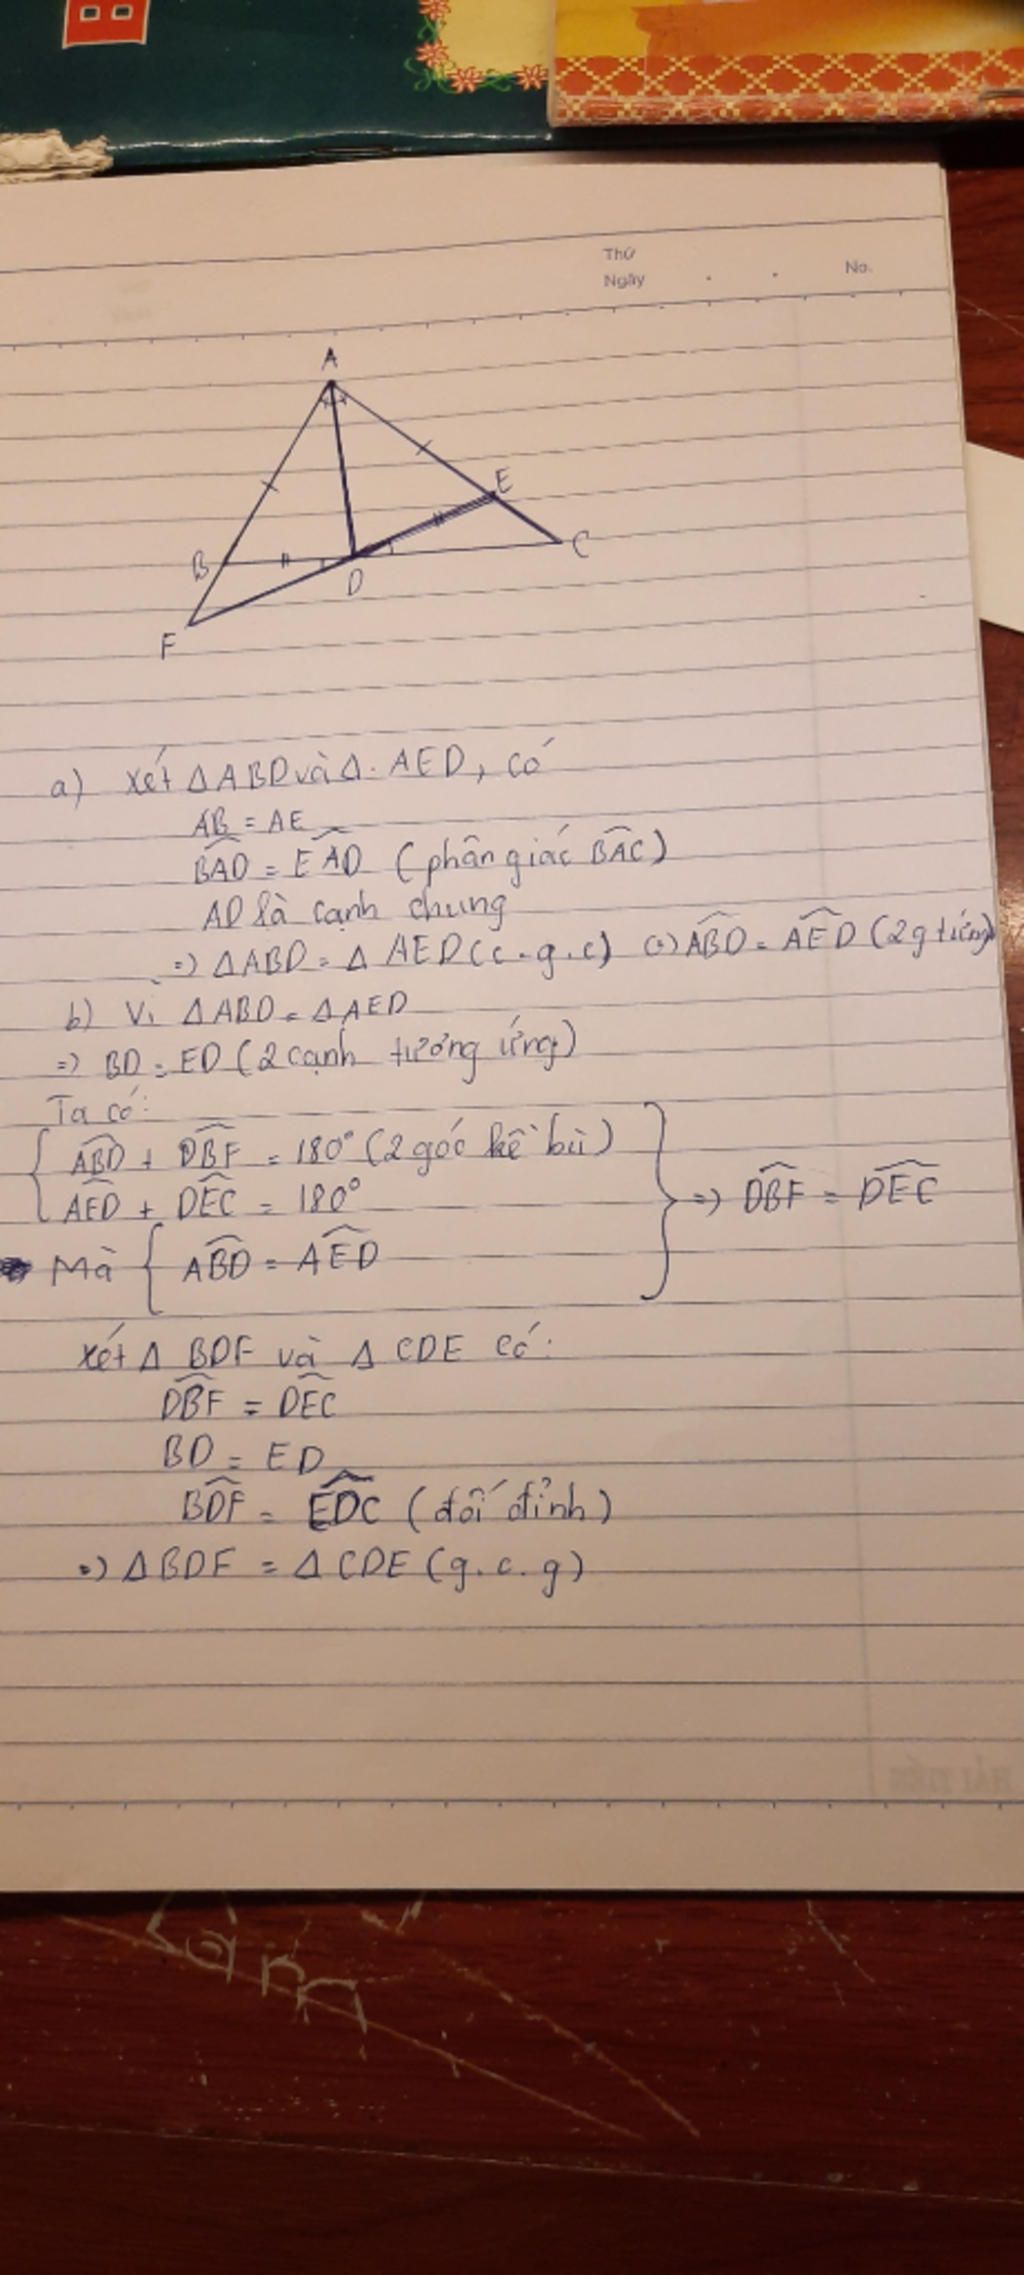 Thứ
Ngày . . No.
A
E
B
C
D
F
a) Xét ΔABD và Δ. AED, có
AB = AE
BAD̂ = EAD̂ (phân giác BAĈ)
AD là cạnh chung
=> ΔABD = Δ AED (c.g.c) (=) ABD̂ = AED̂ (2 g tứng)
b) Vì ΔABD = ΔAED
=> BD = ED (2 cạnh tương ứng)
Ta có:
{ ABD̂ + DBF̂ = 180° (2 góc kề bù)
AED̂ + DEĈ = 180° } => DBF̂ = DEĈ
Mà { ABD̂ = AED̂
Xét Δ BDF và Δ CDE có:
DBF̂ = DEĈ
BD = ED
BDF̂ = EDĈ (đối đỉnh)
=> Δ BDF = Δ CDE (g.c.g)
HẢI TIẾN